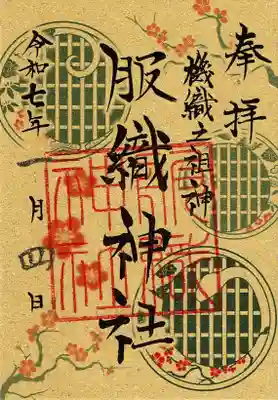 奉拝
機織之祖神
服織神社
令和七年
一月四日